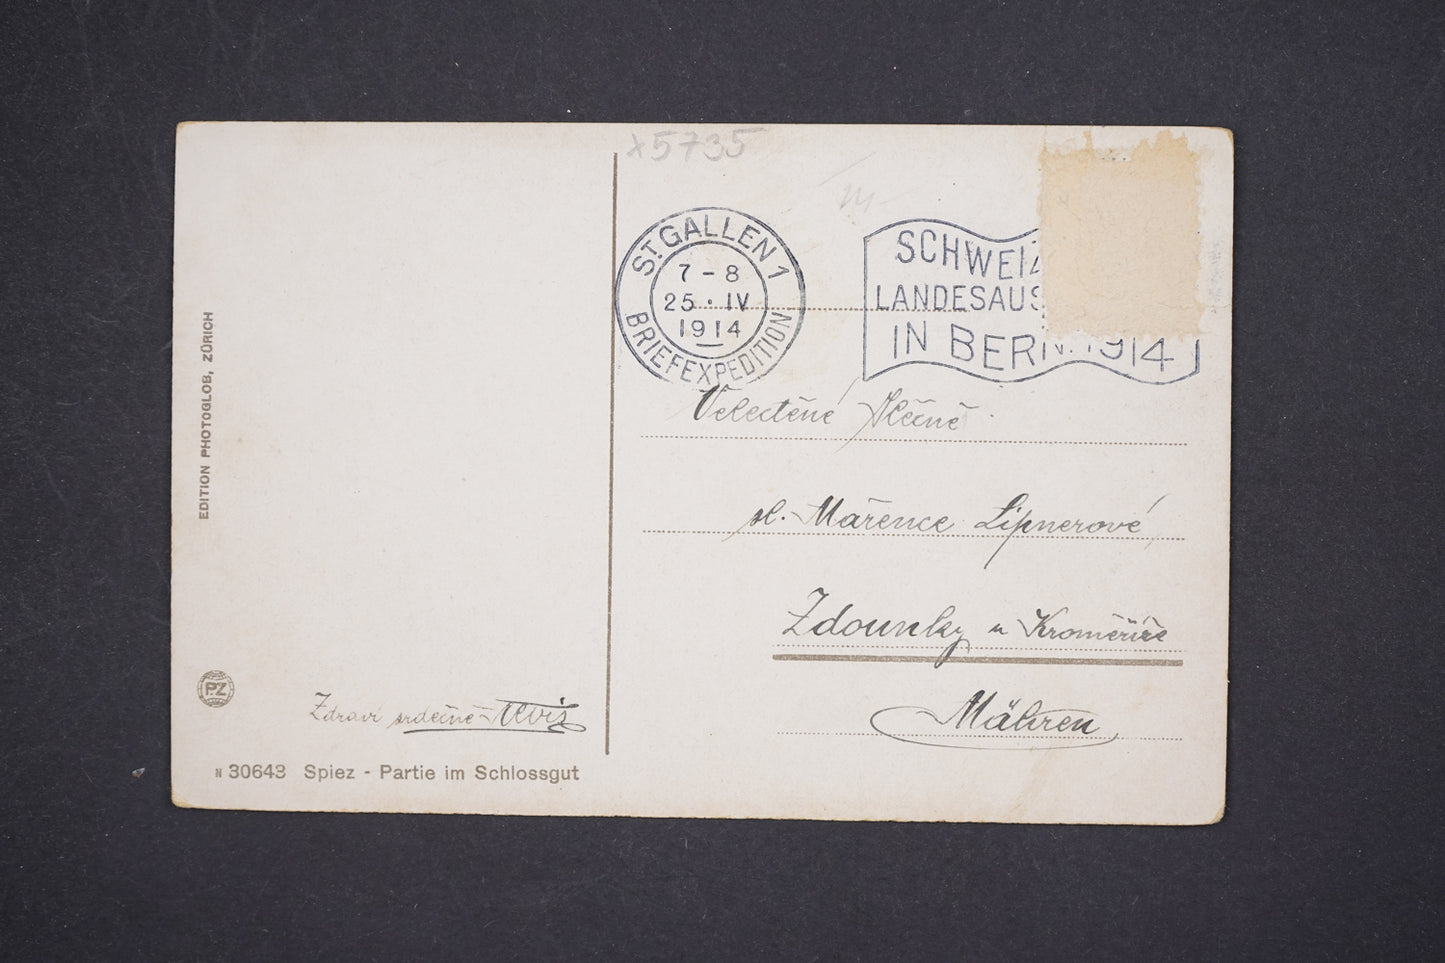 x5735
ST. GALLEN 1
7 - 8
25 · IV
1914
BRIEFEXPEDITION
SCHWEIZ
LANDESAUS
IN BERN. 1914
Velectěné Slečně
sl. Mařence Lipnerové
Zdounky u Kroměříže
Mähren
EDITION PHOTOGLOB, ZÜRICH
PZ
Zdraví srdečně
N 30643 Spiez - Partie im Schlossgut